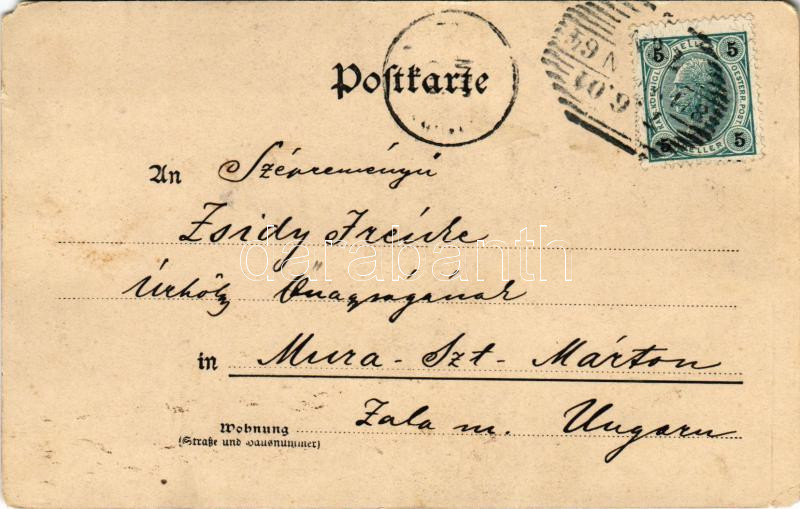 Postkarte
5 HELLER 5
OESTERR. POST
5 HELLER 5
6.01
V
An
Zsidy
Úrhölgy
in Mura-Szt-Márton
Wohnung Zala m. Ungarn
(Straße und Hausnummer)
darabanth